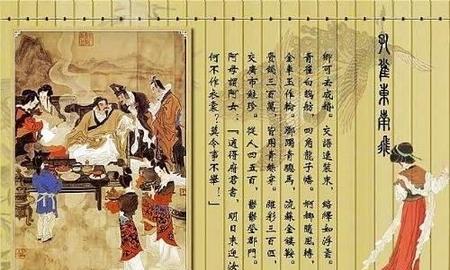 孔雀東南飛
卿可去成婚。交語速裝束，絡繹如浮雲。
青雀白鵠舫，四角龍子幡。婀娜隨風轉，
金車玉作輪。躑躅青驄馬，流蘇金鏤鞍。
齎錢三百萬，皆用青絲穿。雜彩三百匹，
交廣市鮭珍。從人四五百，鬱鬱登郡門。
阿母謂阿女：「適得府君書，明日來迎汝
何不作衣裳？莫令事不舉！」